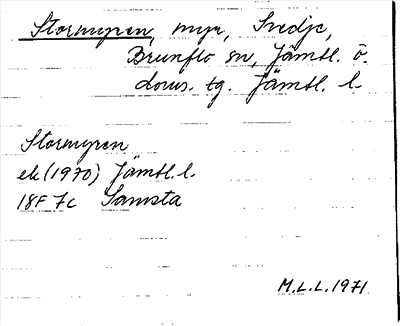 Stormyren, myr, Svedje,
Brunflo sn, Jämtl. ö.
doms. tg. Jämtl. l.
Stormyren
ek (1970) Jämtl. l.
18F 7c Samsta
M.L.L. 1971